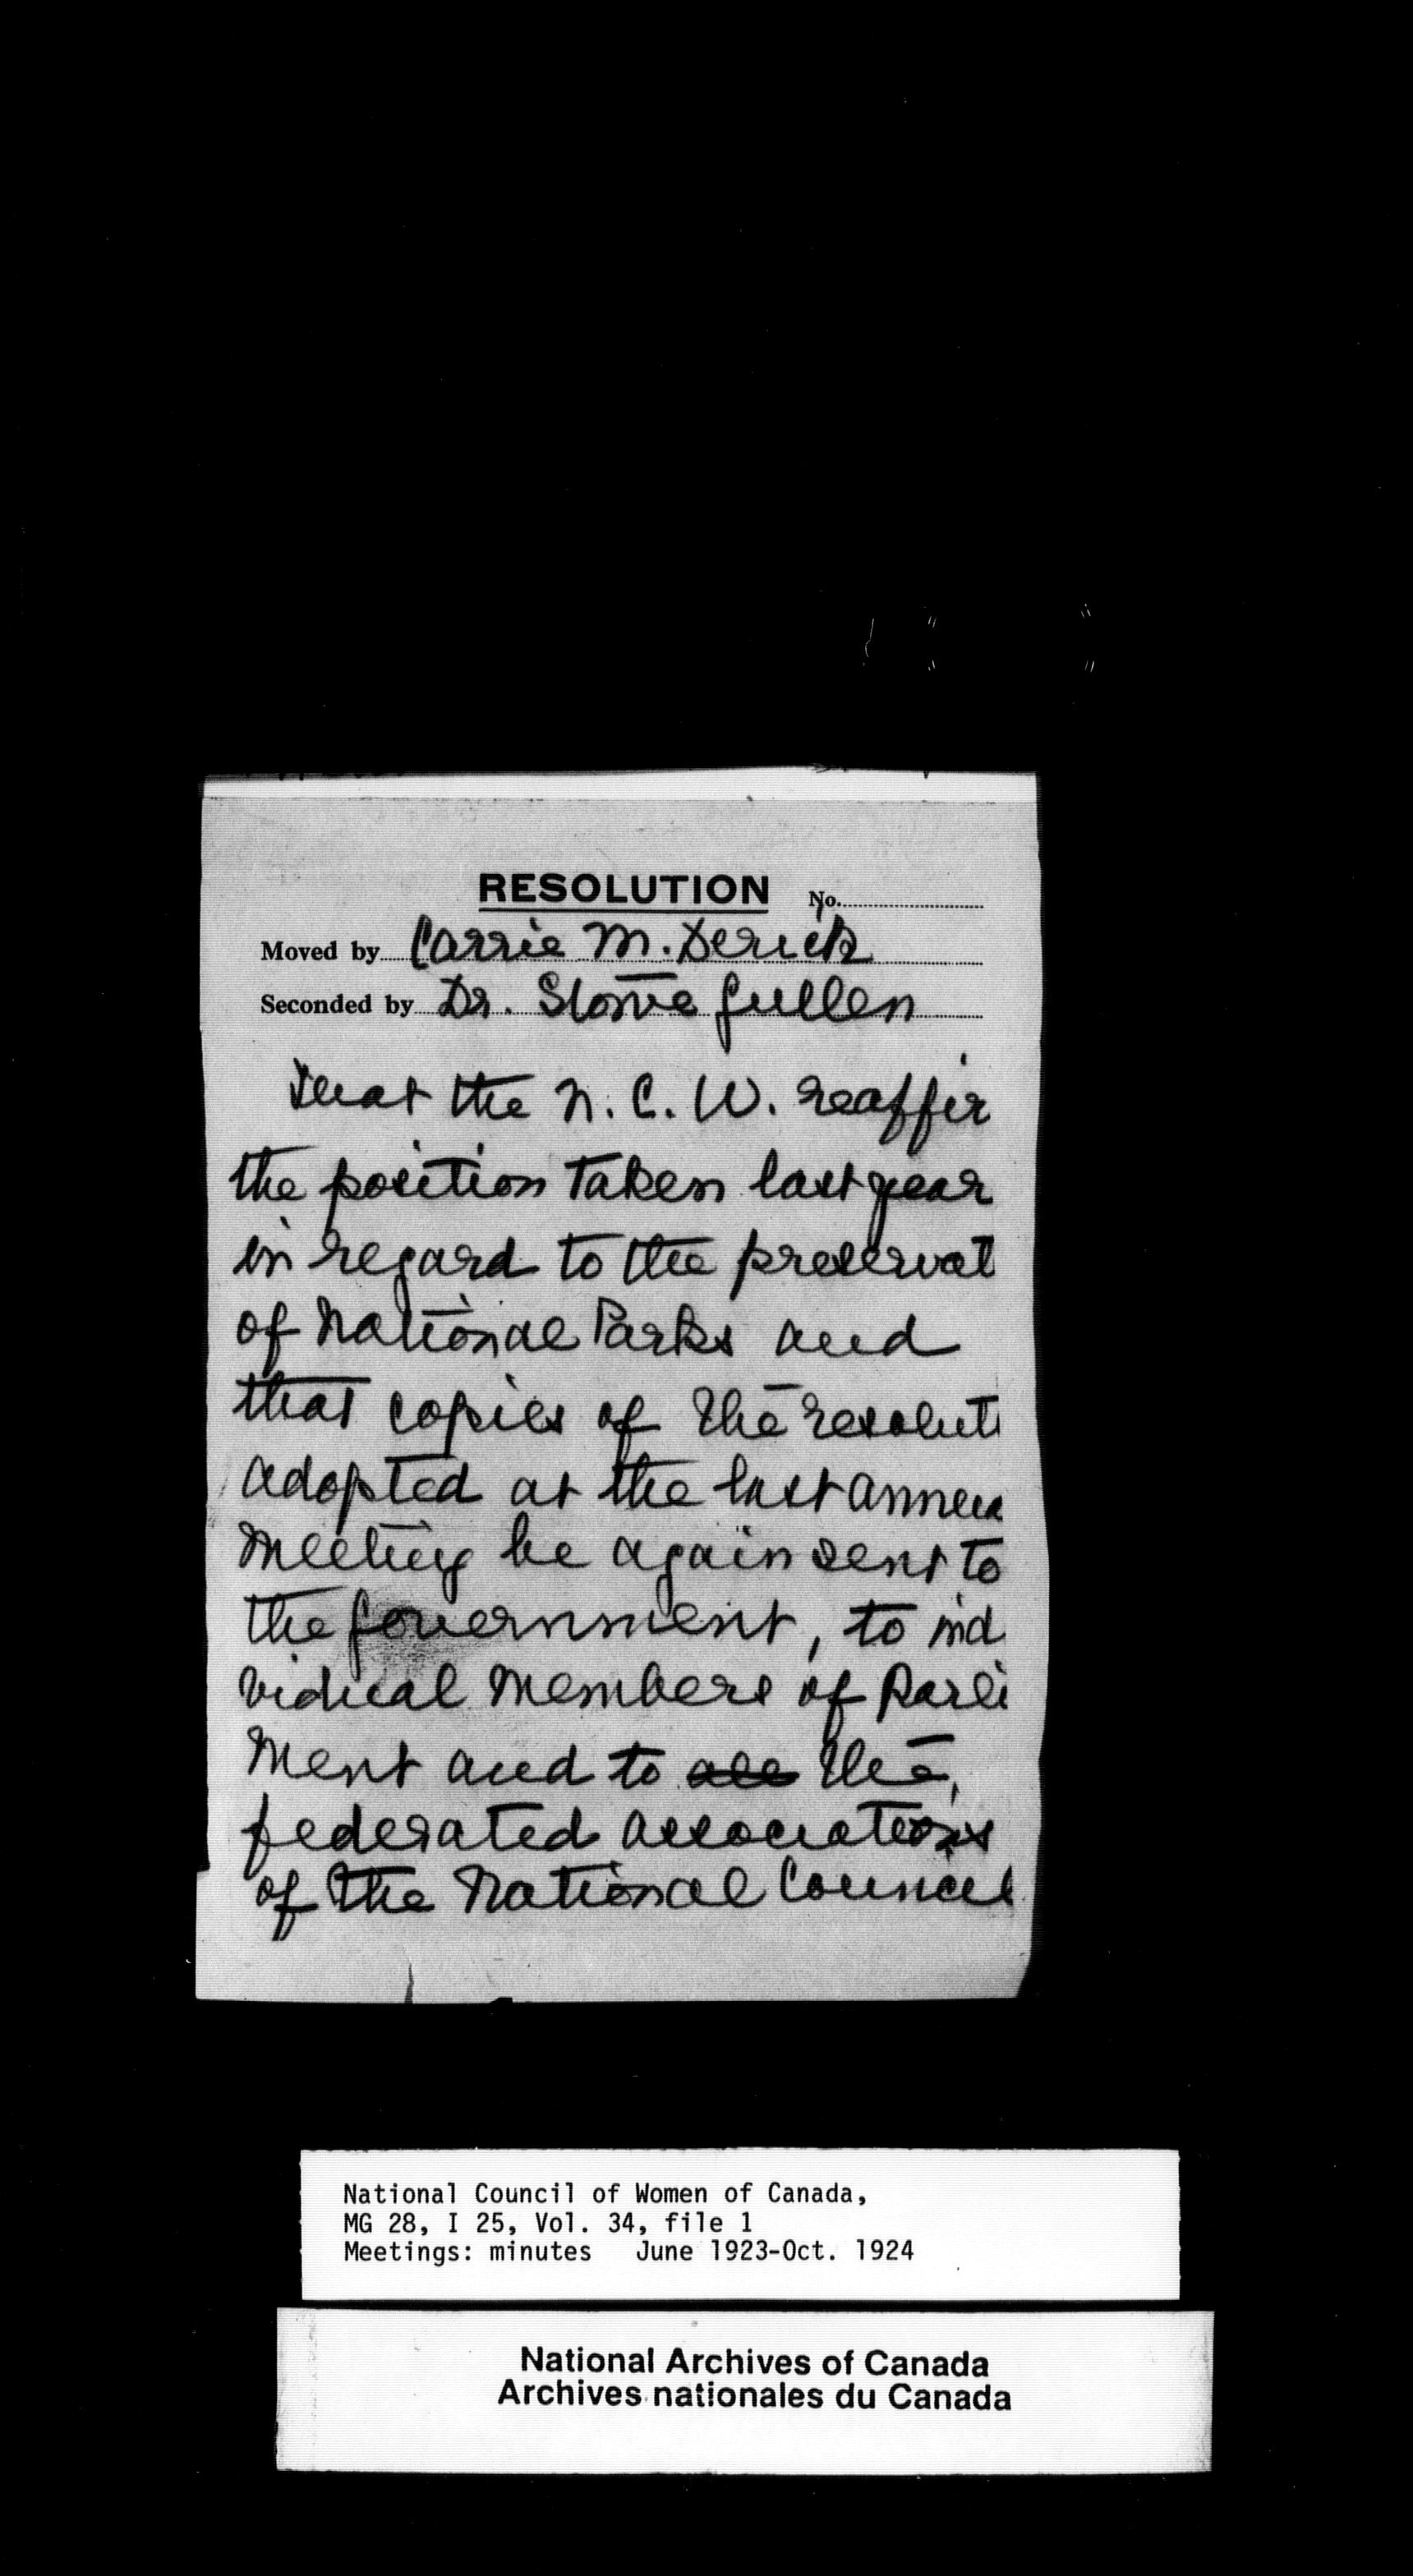 RESOLUTION No.
Moved by Carrie M. Derick
Seconded by Dr. Stowe Gullen
that the N. C. W. reaffir
the position taken last year
in regard to the preservat
of National Parks and
that copies of the resoluti
adopted at the last annua
meeting be again sent to
the Government, to ind
vidual Members of Parli
ment and to all the
federated associations
of the National Council
National Council of Women of Canada,
MG 28, I 25, Vol. 34, file 1
Meetings: minutes June 1923-Oct. 1924
National Archives of Canada
Archives nationales du Canada